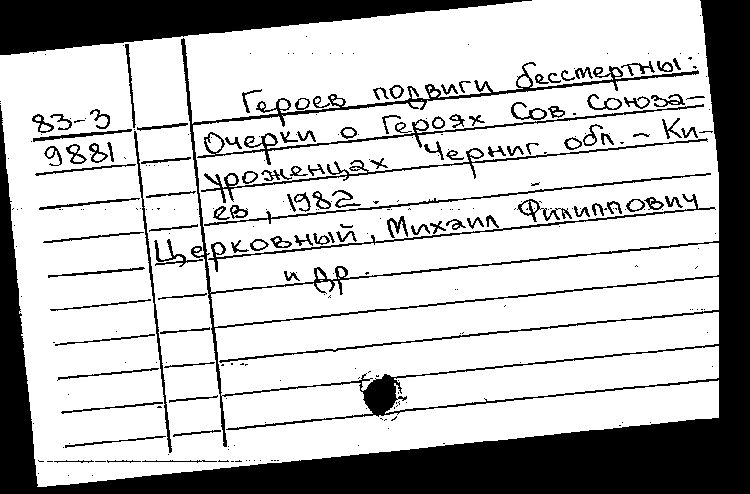 83-3
9881
Героев подвиги бессмертны:
Очерки о Героях Сов. Союза-
уроженцах Черниг. обл. - Ки-
ев, 1982.
Церковный, Михаил Филиппович
и др.